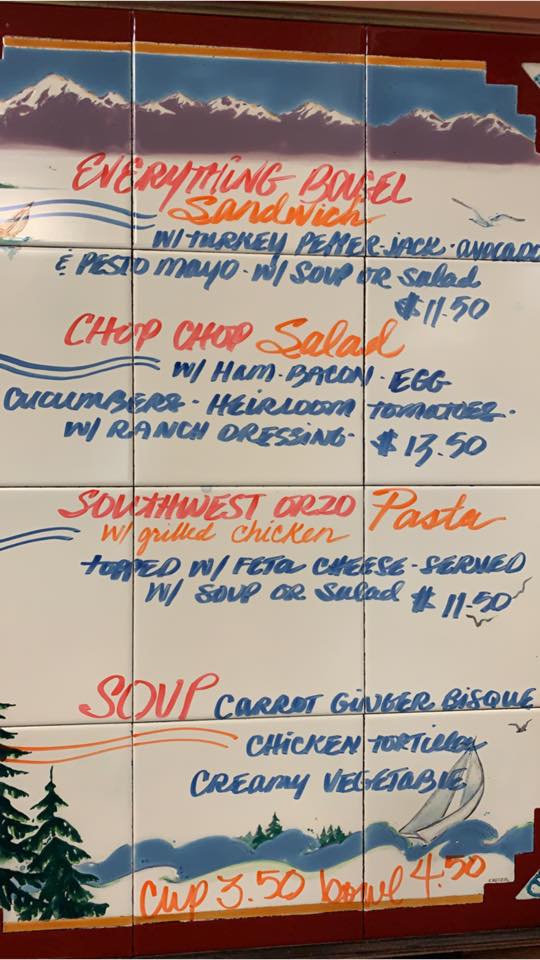 EVERYTHING BAGEL
Sandwich
W/ TURKEY PEPPER-JACK · AVOCADO
& PESTO MAYO · W/ SOUP OR Salad
$11.50
CHOP CHOP Salad
W/ HAM · BACON · EGG
CUCUMBERS · HEIRLOOM TOMATOES ·
W/ RANCH DRESSING · $13.50
SOUTHWEST ORZO Pasta
W/ grilled chicken
TOPPED W/ FETA CHEESE - SERVED
W/ SOUP OR Salad $11.50
SOUP CARROT GINGER BISQUE
CHICKEN TORTILLA
CREAMY VEGETABLE
cup 3.50 bowl 4.50